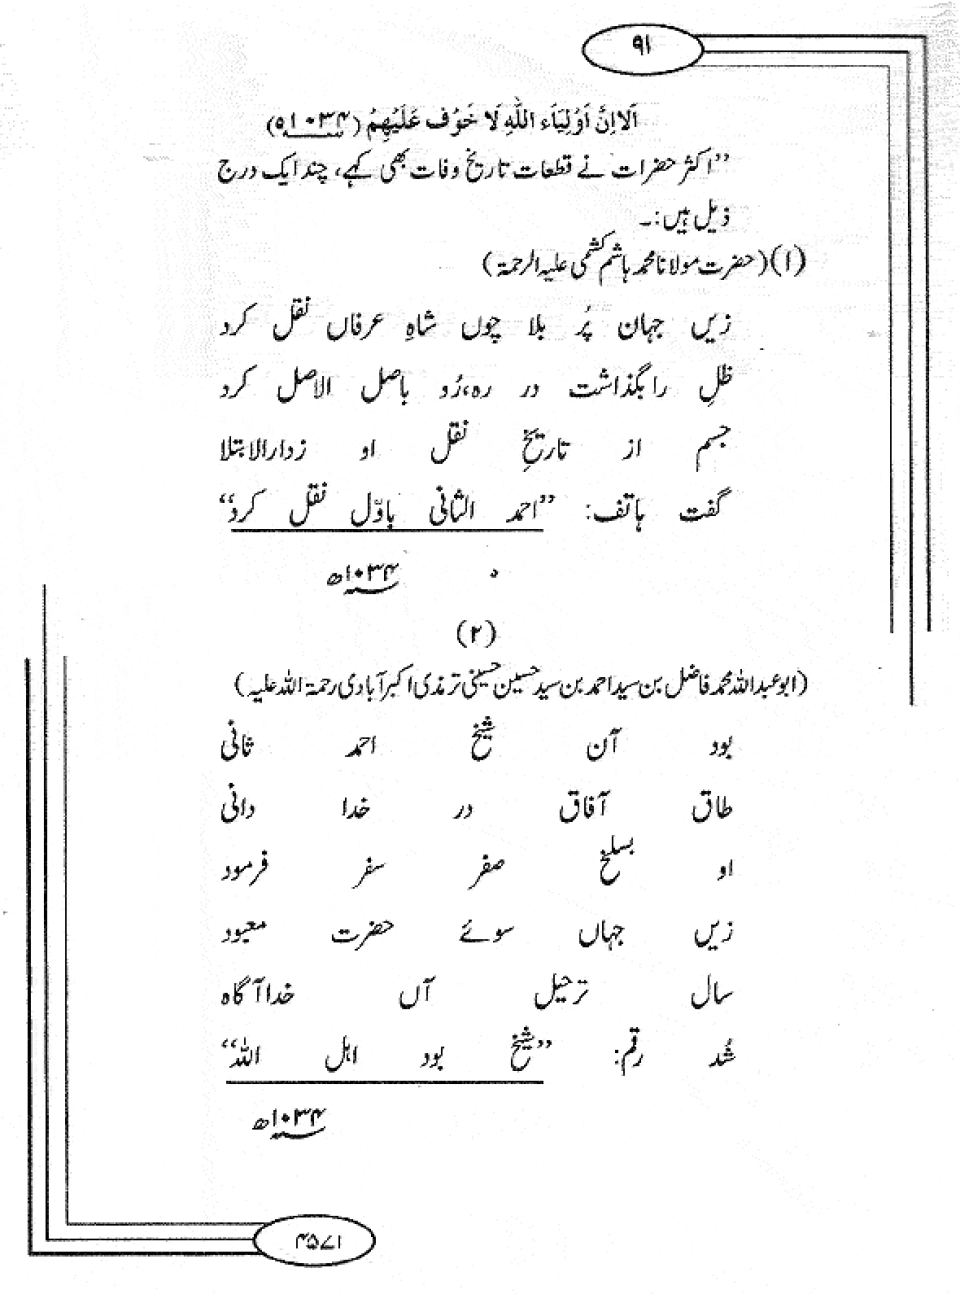 ۹۱
اَلَا اِنَّ اَوْلِیَاءَ اللّٰہِ لَا خَوْف عَلَیْہِمْ (۱۰۳۴ھ)
"اکثر حضرات نے قطعات تاریخ وفات بھی کہے، چند ایک درج
ذیل ہیں:۔
(۱) (حضرت مولانا محمد ہاشم کشمی علیہ الرحمۃ)
زیں جہان پُر بلا چوں شاہِ عرفاں نقل کرد
ظلِ را بگذاشت در رہ، رُو باصل الاصل کرد
جسم از تاریخِ نقل او زدار الابتلا
گفت ہاتف: "احمد الثانی باوّل نقل کرد"
۱۰۳۴ھ
(۲)
(ابوعبداللہ محمد فاضل بن سید احمد بن سید حسین حسینی ترمذی اکبر آبادی رحمۃ اللہ علیہ)
بود آن شیخ احمد ثانی
طاق آفاق در خدا دانی
او بسلخ صفر سفر فرمود
زیں جہاں سوئے حضرت معبود
سال ترحیل آں خدا آگاہ
شُد رقم: "شیخ بود اہل اللہ"
۱۰۳۴ھ